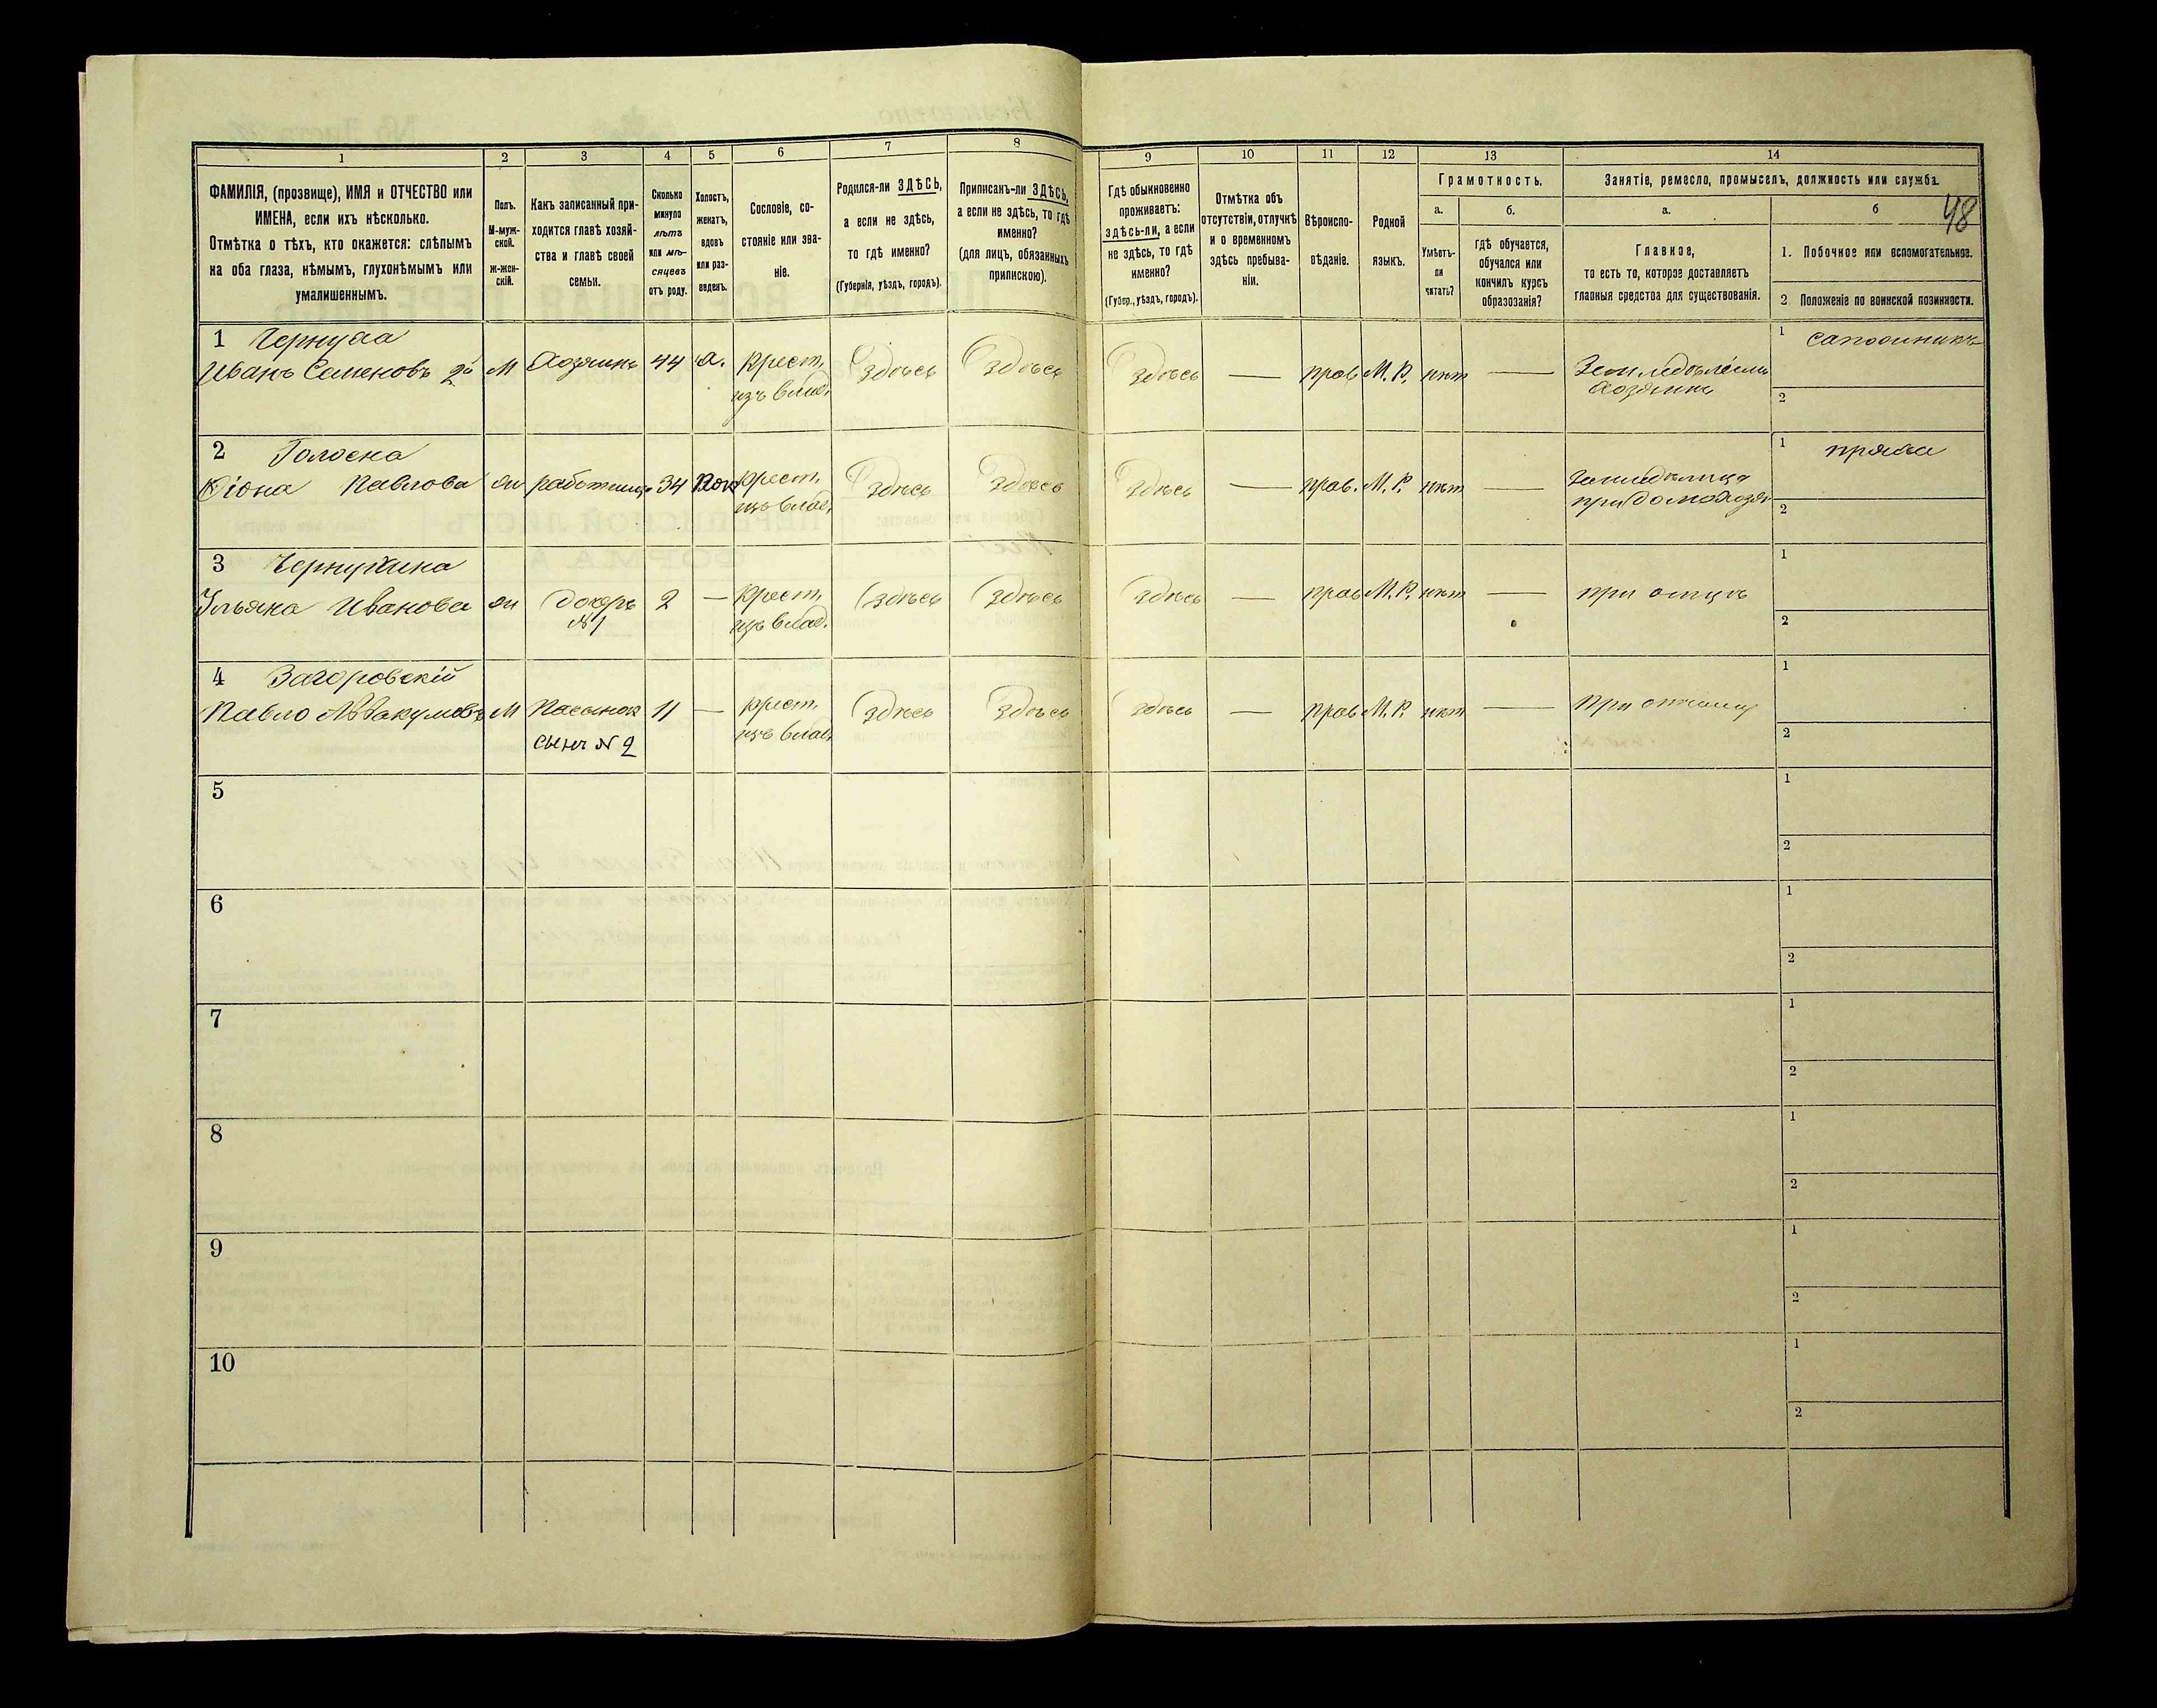 1 2 3 4 5 6 7 8 9 10 11 12 13 14
48
ФАМИЛІЯ, (прозвище), ИМЯ и ОТЧЕСТВО или
ИМЕНА, если ихъ нѣсколько.
Отмѣтка о тѣхъ, кто окажется: слѣпымъ
на оба глаза, нѣмымъ, глухонѣмымъ или
умалишеннымъ.
Полъ.
М-муж-
ской.
Ж-жен-
скій.
Какъ записанный при-
ходится главѣ хозяй-
ства и главѣ своей
семьи.
Сколько
минуло
лѣтъ
или мѣ-
сяцевъ
отъ роду.
Холостъ,
женатъ,
вдовъ
или раз-
веденъ.
Сословіе, со-
стояніе или зва-
ніе.
Родился-ли ЗДѢСЬ,
а если не здѣсь,
то гдѣ именно?
(Губернія, уѣздъ, городъ).
Приписанъ-ли ЗДѢСЬ,
а если не здѣсь, то гдѣ
именно?
(для лицъ, обязанныхъ
припискою).
Гдѣ обыкновенно
проживаетъ:
здѣсь-ли, а если
не здѣсь, то гдѣ
именно?
(Губер., уѣздъ, городъ).
Отмѣтка объ
отсутствіи, отлучкѣ
и о временномъ
здѣсь пребыва-
ніи.
Вѣроиспо-
вѣданіе.
Родной
языкъ.
Грамотность.
а.
Умѣетъ-
ли
читать?
б.
гдѣ обучается,
обучался или
кончилъ курсъ
образованія?
Занятіе, ремесло, промыселъ, должность или служба.
а.
Главное,
то есть то, которое доставляетъ
главныя средства для существованія.
б
1. Побочное или вспомогательное.
2 Положеніе по воинской повинности.
1 Чернуха
Иванъ Семеновъ 2й М Хозяинъ 44 Крест. Здѣсь Здѣсь Здѣсь — прав М. Р. нѣт —
изъ влад. Хозяинъ
1 сапожникъ
2
2 Голосна
Павлова работница 34 крест. Здѣсь Здѣсь Здѣсь — прав. М. Р. нѣт —
изъ влад.
1 пряха
2
3 Чернухина
Ульяна Иванова дочерь 2 — Крест. Здѣсь Здѣсь Здѣсь — прав М. Р. нѣт — при отцѣ
№1 изъ влад.
1
2
4 Загоровскій
Павло Аввакумовъ М Пасынок 11 — крест. Здѣсь Здѣсь Здѣсь — прав М. Р. нѣт —
сынъ № 2 изъ влад.
1
2
5
1
2
6
1
2
7
1
2
8
1
2
9
1
2
10
1
2